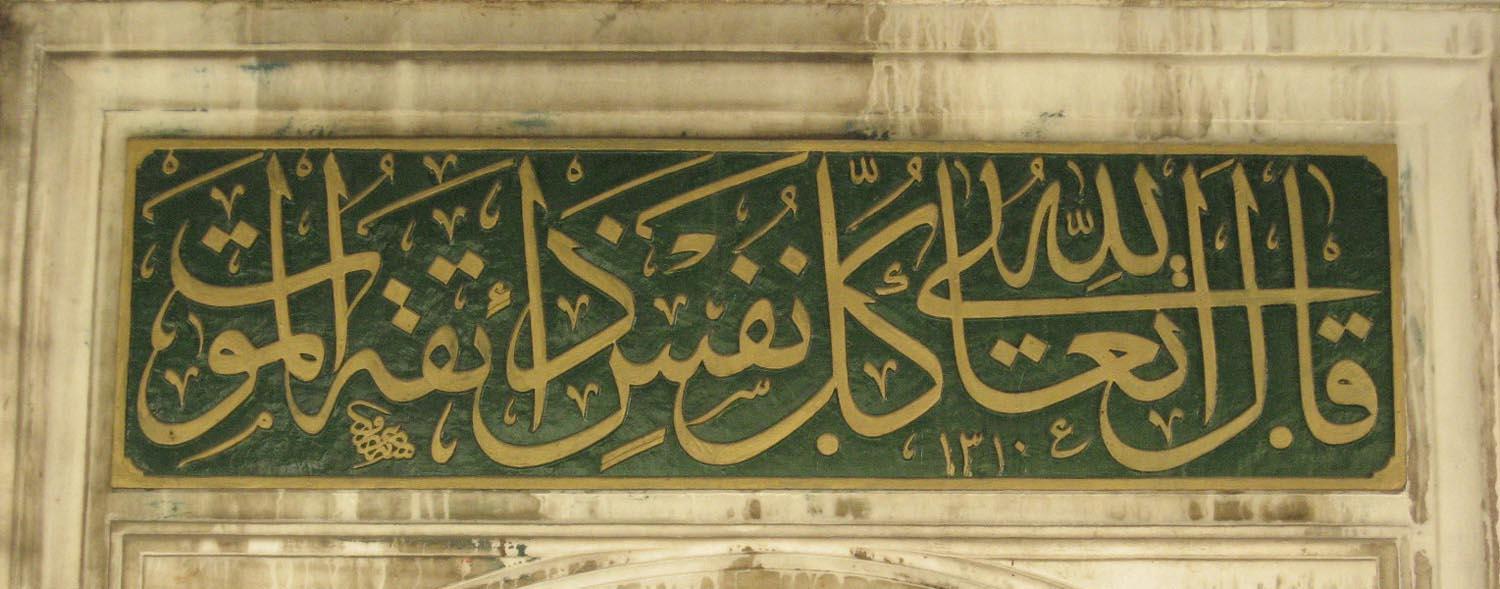 قال الله تعالى كل نفس ذائقة الموت
١٣١٠